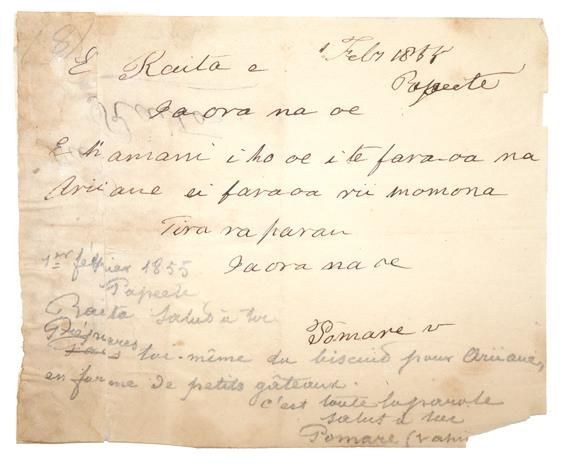 E Raita e 1 Febr 1855
Papeete
Ia ora na oe
E hamani iho oe i te faraoa na
Ariiaue ei faraoa rii momona
Tira ra parau
Ia ora na oe
Pomare v
1er février 1855
Papeete
Raita salut à toi
Prépares
fais toi-même du biscuit pour Ariiaue,
en forme de petits gâteaux.
c'est toute la parole
salut à toi
Pomare (vahi